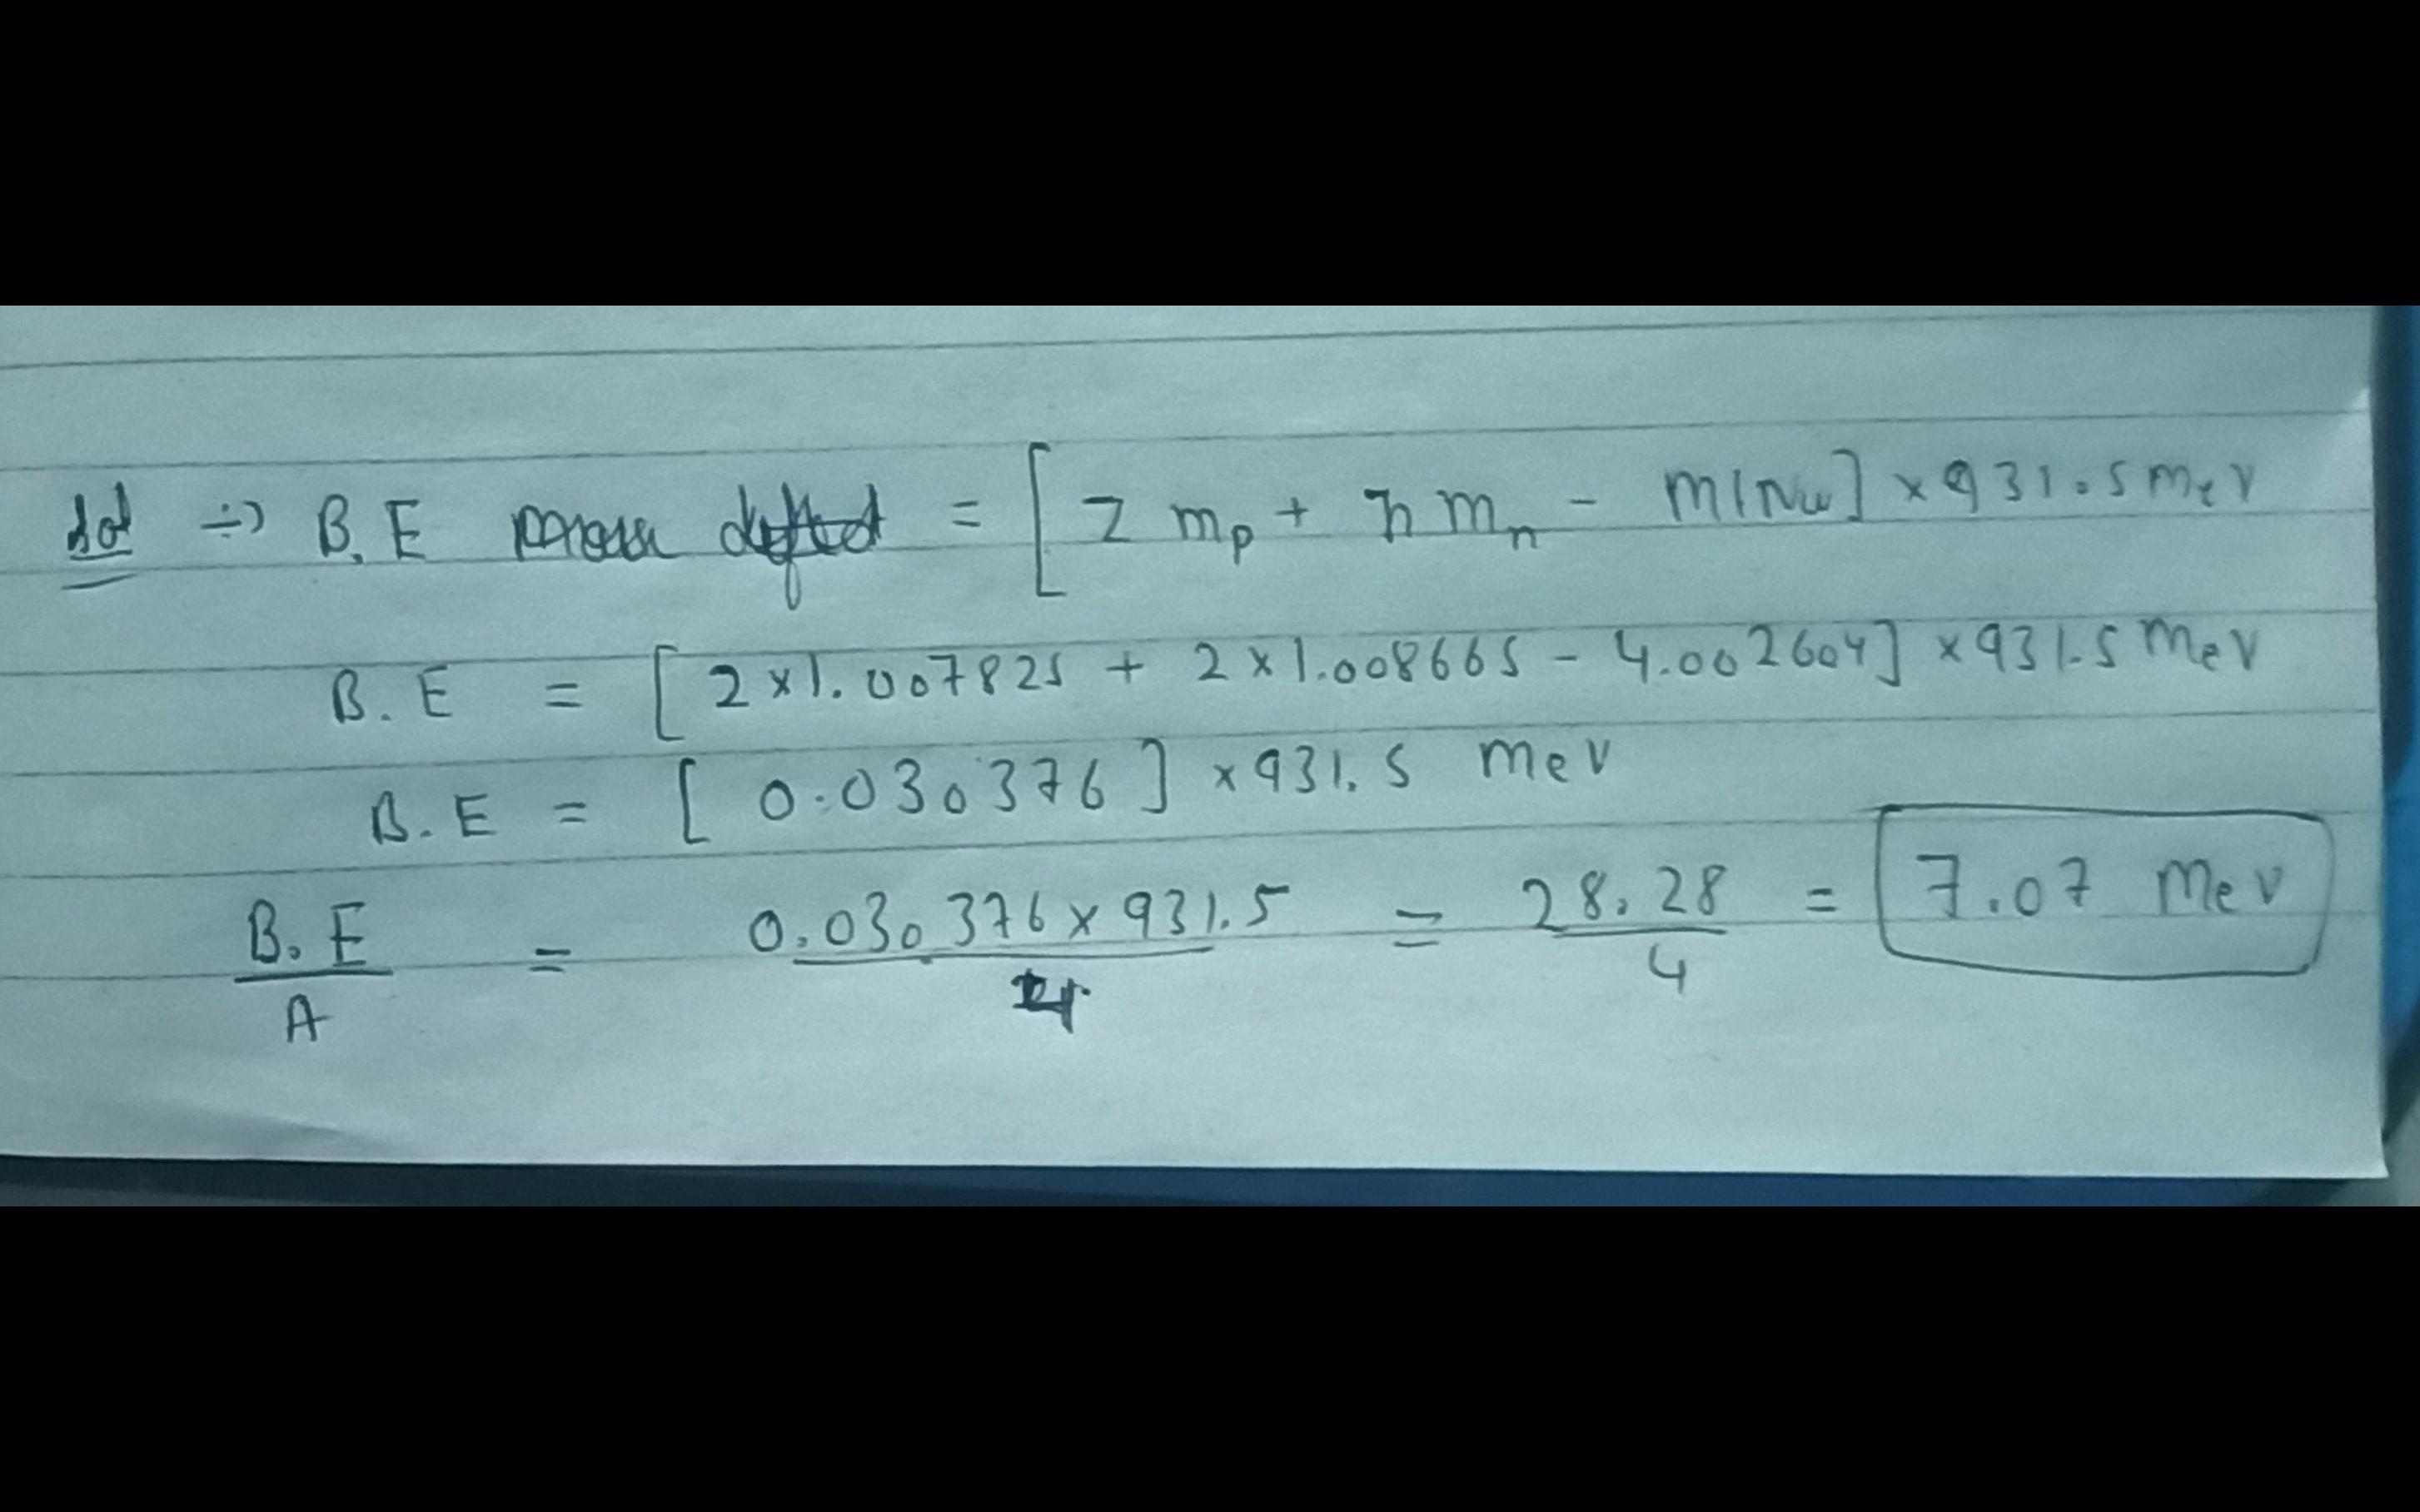 Sol ÷> B.E mass defect = [ Z mp + n mn - M(Nu] × 931.5 MeV
B.E = [ 2×1.007825 + 2×1.008665 - 4.002604] ×931.5 MeV
B.E = [ 0.030376 ] ×931.5 MeV
B.E / A = 0.030376×931.5 / 4 = 28.28 / 4 = 7.07 MeV